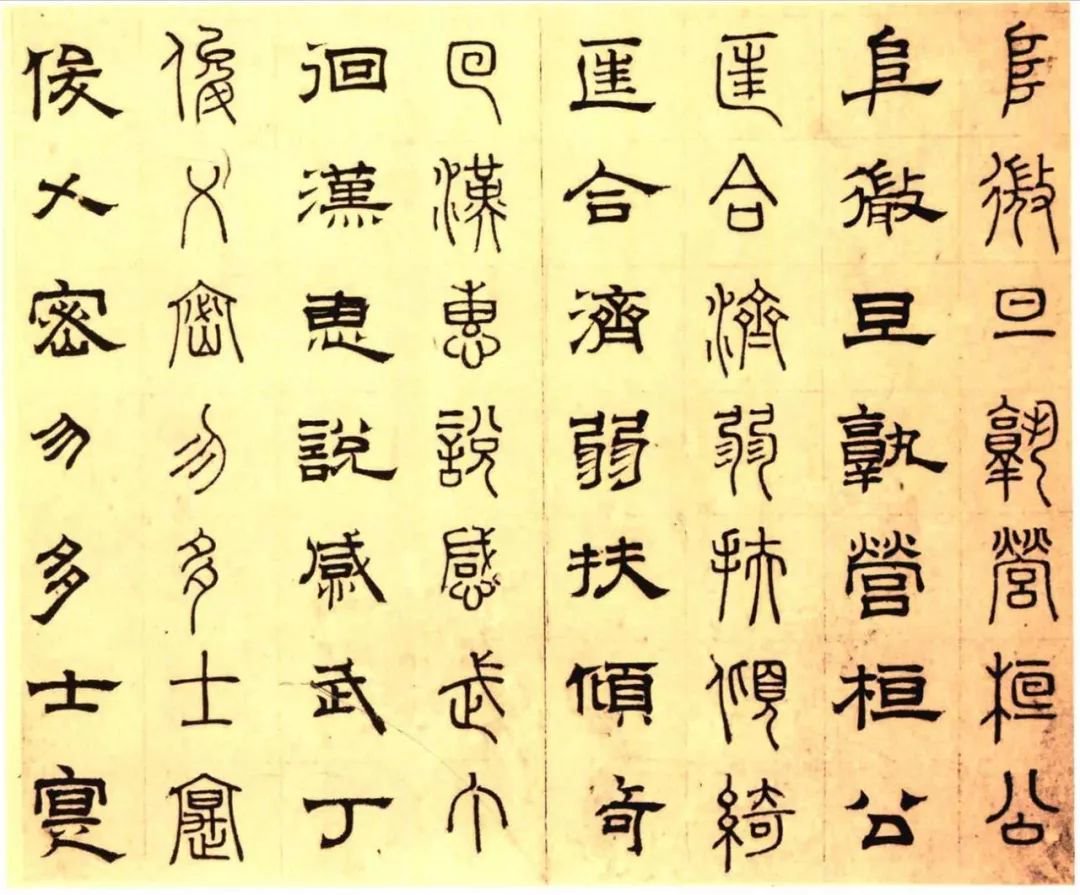 阜微旦孰營桓公
阜微旦孰營桓公
匡合濟弱扶傾綺
匡合濟弱扶傾奇
回漢惠說感武丁
徊漢惠說感武丁
俊乂密勿多士寔
俊乂密勿多士寔